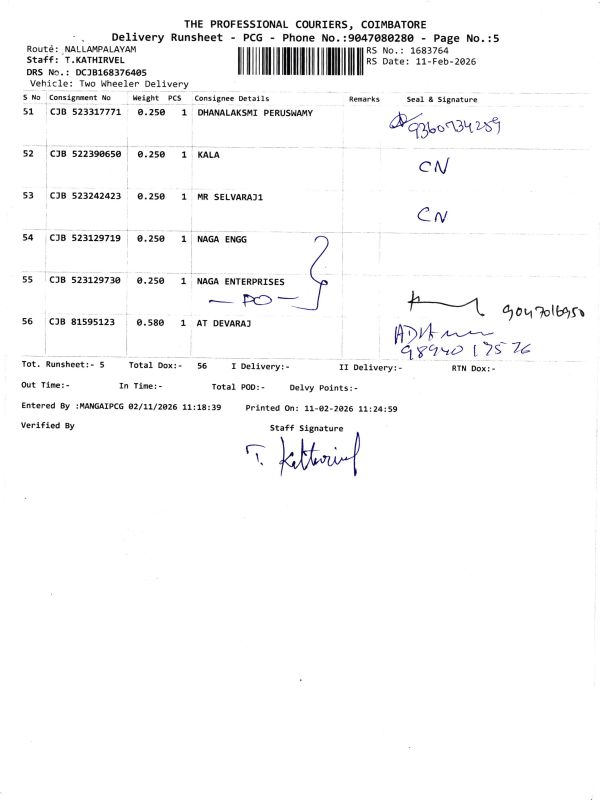 THE PROFESSIONAL COURIERS, COIMBATORE
Delivery Runsheet - PCG - Phone No.:9047080280 - Page No.:5
Route: NALLAMPALAYAM
RS No.: 1683764
Staff: T.KATHIRVEL
RS Date: 11-Feb-2026
DRS No.: DCJB168376405
Vehicle: Two Wheeler Delivery
S No Consignment No Weight PCS Consignee Details Remarks Seal & Signature
51 CJB 523317771 0.250 1 DHANALAKSMI PERUSWAMY
9360734259
52 CJB 522390650 0.250 1 KALA
CN
53 CJB 523242423 0.250 1 MR SELVARAJ1
CN
54 CJB 523129719 0.250 1 NAGA ENGG
55 CJB 523129730 0.250 1 NAGA ENTERPRISES
— PO —
9047016950
56 CJB 81595123 0.580 1 AT DEVARAJ
98940 17576
Tot. Runsheet:- 5 Total Dox:- 56 I Delivery:- II Delivery:- RTN Dox:-
Out Time:- In Time:- Total POD:- Delvy Points:-
Entered By :MANGAIPCG 02/11/2026 11:18:39 Printed On: 11-02-2026 11:24:59
Verified By Staff Signature
T. Kathirvel